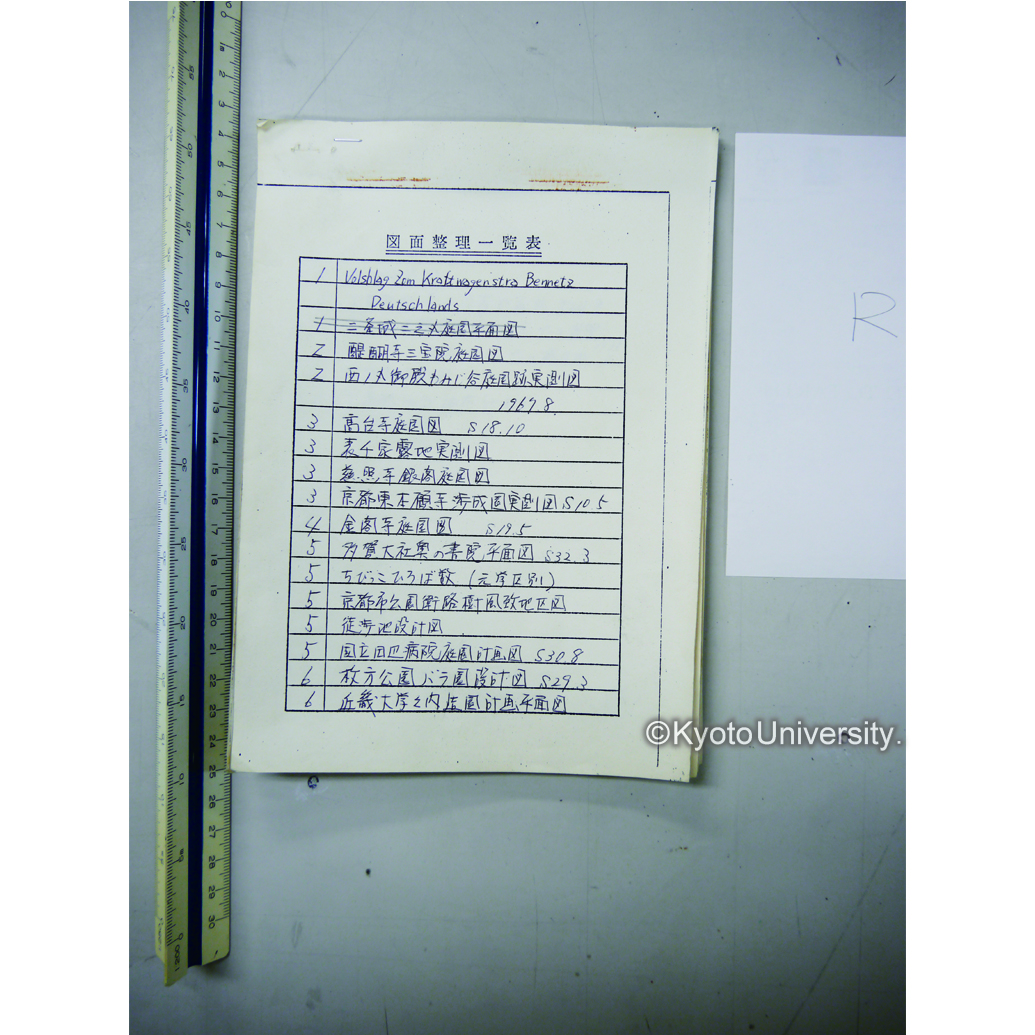 図面整理一覧表
1 Volshlag Zom Kraftwagenstra Bennetz
Deutschlands
1 二条城二之丸庭園平面図
2 醍醐寺三宝院庭園図
2 西ノ丸御殿もみじ谷庭園跡実測図
1969.8.
3 高台寺庭園図 S18.10
3 表千家露地実測図
3 慈照寺銀閣庭園図
3 京都東本願寺渉成園実測図 S10.5
4 金閣寺庭園図 S19.5
5 多賀大社奥の書院平面図 S32.3
5 ちびっこひろば数(元学区別)
5 京都市公園街路樹風致地区図
5 徒渉池設計図
5 国立田辺病院庭園計画図 S30.8
6 枚方公園バラ園設計図 S29.3
6 近畿大学之内造園計画平面図
R
©KyotoUniversity.